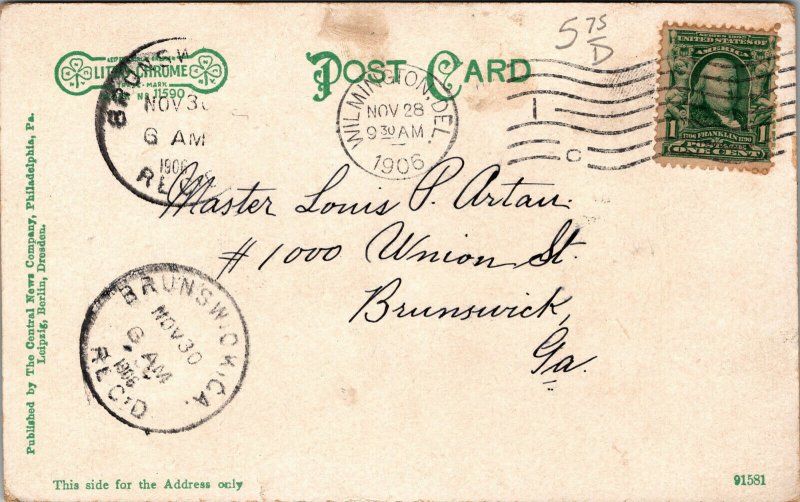 5 75/D
LITHO-CHROME
MARK
No. 11590
POST CARD
BRUNSW
NOV 30
6 AM
1906
REC
WILMINGTON, DEL.
NOV 28
9 30 AM
1906
SERIES 1902
UNITED STATES OF
AMERICA
1706 FRANKLIN 1790
1 POSTAGE 1
ONE CENT
Master Louis P. Artau.
# 1000 Union St.
Brunswick,
Ga.
BRUNSWICK, GA.
NOV 30
6 AM
1906
REC'D
Published by The Central News Company, Philadelphia, Pa.
Leipzig, Berlin, Dresden.
This side for the Address only
91581